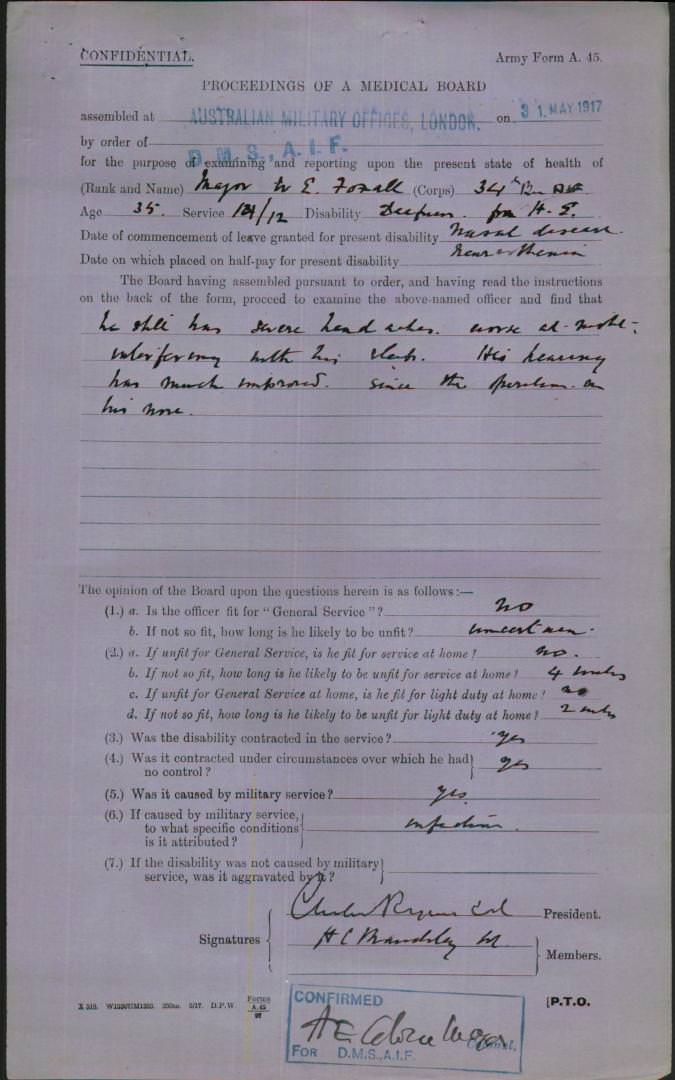 CONFIDENTIAL. Army Form A. 45.
PROCEEDINGS OF A MEDICAL BOARD
assembled at AUSTRALIAN MILITARY OFFICES, LONDON. on 31. MAY 1917
by order of D.M.S., A.I.F.
for the purpose of examining and reporting upon the present state of health of
(Rank and Name) Major W E. Foxall (Corps) 34th Bn AIF
Age 35. Service /12 Disability Deafness. from H. E.
Date of commencement of leave granted for present disability Nasal disease.
Date on which placed on half-pay for present disability Neurasthenia
The Board having assembled pursuant to order, and having read the instructions
on the back of the form, proceed to examine the above-named officer and find that
he still has severe head aches. worse at night.
interfering with his sleep. His hearing
has much improved. since the operation on
his nose.
The opinion of the Board upon the questions herein is as follows:—
(1.) a. Is the officer fit for "General Service"? no
b. If not so fit, how long is he likely to be unfit? uncertain.
(2.) a. If unfit for General Service, is he fit for service at home? no.
b. If not so fit, how long is he likely to be unfit for service at home? 4 mths
c. If unfit for General Service at home, is he fit for light duty at home? no
d. If not so fit, how long is he likely to be unfit for light duty at home? 2 mths
(3.) Was the disability contracted in the service? yes
(4.) Was it contracted under circumstances over which he had} yes
no control?
(5.) Was it caused by military service? yes.
(6.) If caused by military service,
to what specific conditions infection.
is it attributed?
(7.) If the disability was not caused by military}
service, was it aggravated by it?
President.
Signatures H C Maudsley
Members.
X 318. 250m. 5/17. D.P.W. Forms A.45 [P.T.O.
CONFIRMED
Colonel.
FOR D.M.S., A.I.F.